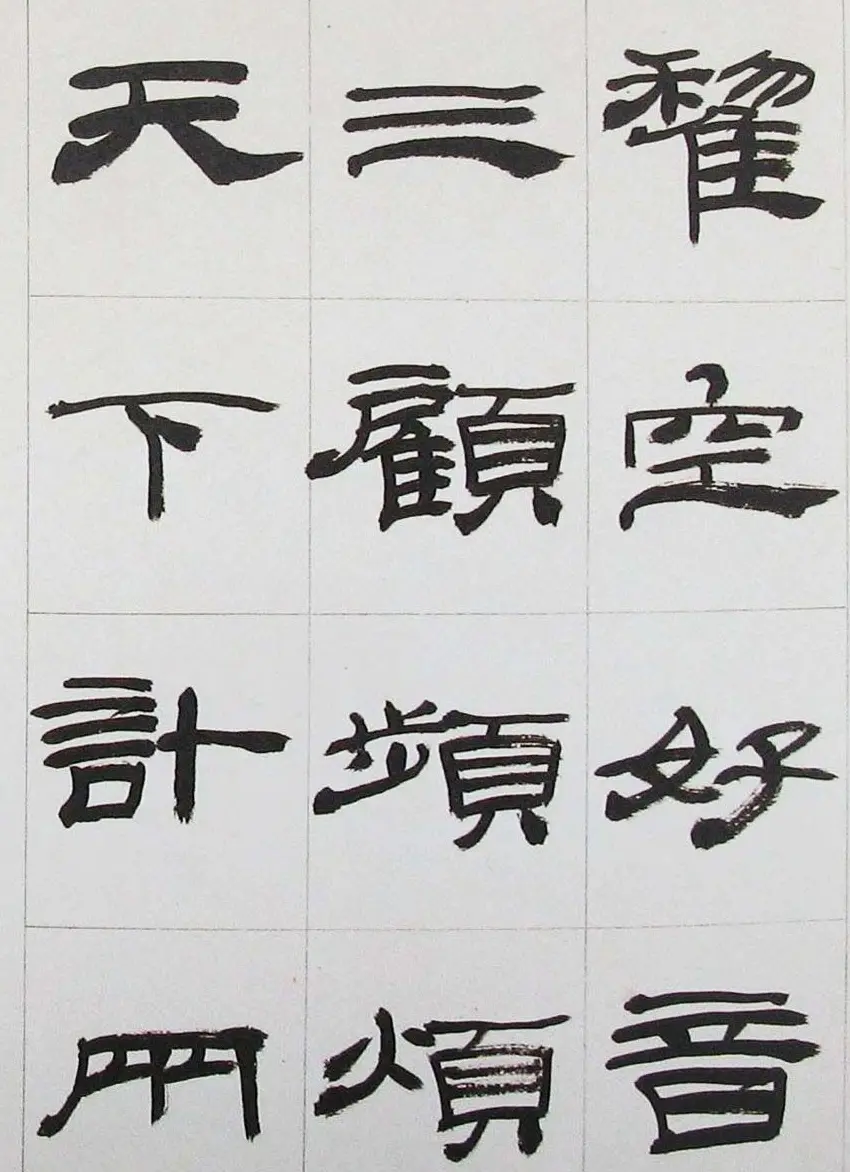 空好音
三顧頻煩
天下計兩